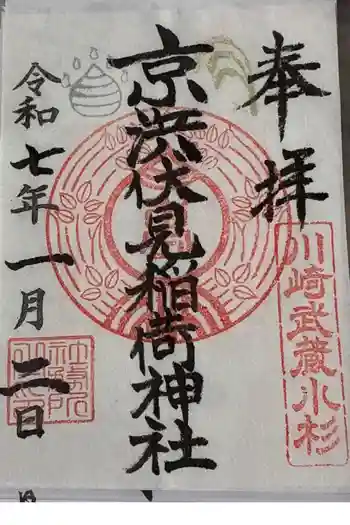 奉拝
川崎武蔵小杉
京浜伏見稲荷神社
令和七年一月二日